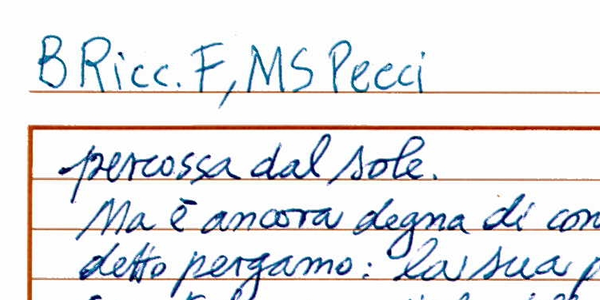 B Ricc. F, MS Pecci
percossa dal sole.
Ma è ancora degna di con
detto pergamo: la sua p